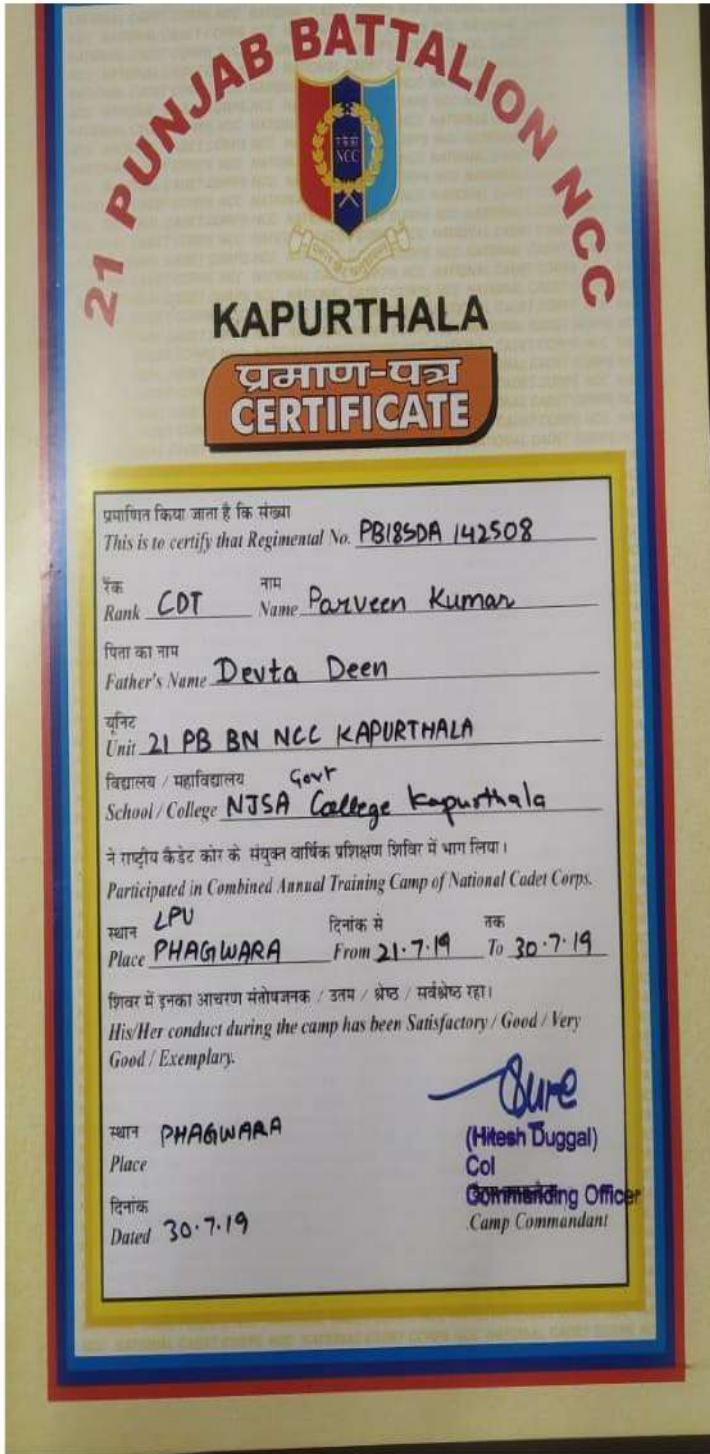 21 PUNJAB BATTALION NCC
एकता
NCC
KAPURTHALA
प्रमाण-पत्र
CERTIFICATE
प्रमाणित किया जाता है कि संख्या
This is to certify that Regimental No. PB18SDA 142508
रैंक नाम
Rank CDT Name Parveen Kumar
पिता का नाम
Father's Name Devta Deen
यूनिट
Unit 21 PB BN NCC KAPURTHALA
विद्यालय / महाविद्यालय Govt
School / College NJSA College Kapurthala
ने राष्ट्रीय कैडेट कोर के संयुक्त वार्षिक प्रशिक्षण शिविर में भाग लिया।
Participated in Combined Annual Training Camp of National Cadet Corps.
स्थान LPU दिनांक से तक
Place PHAGWARA From 21.7.19 To 30.7.19
शिवर में इनका आचरण संतोषजनक / उतम / श्रेष्ठ / सर्वश्रेष्ठ रहा।
His/Her conduct during the camp has been Satisfactory / Good / Very
Good / Exemplary.
स्थान PHAGWARA
Place
(Hitesh Duggal)
Col
Commanding Officer
Camp Commandant
दिनांक
Dated 30.7.19